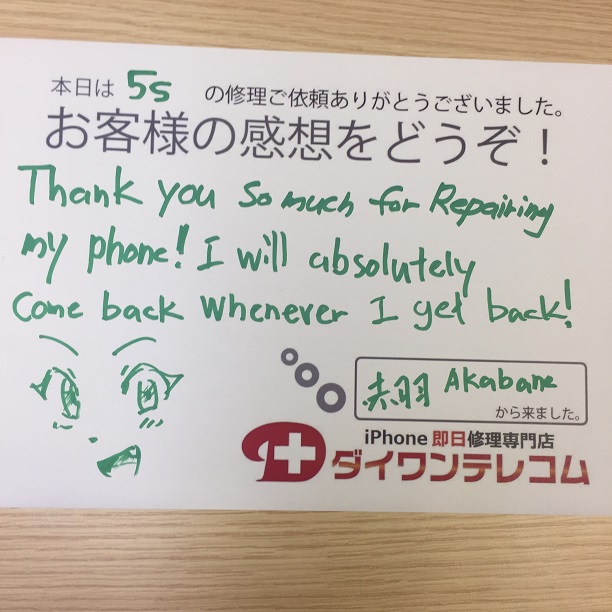 本日は 5s の修理ご依頼ありがとうございました。
お客様の感想をどうぞ！
Thank you so much for Repairing
my phone! I will absolutely
come back whenever I get back!
赤羽 Akabane
から来ました。
iPhone 即日修理専門店
ダイワンテレコム